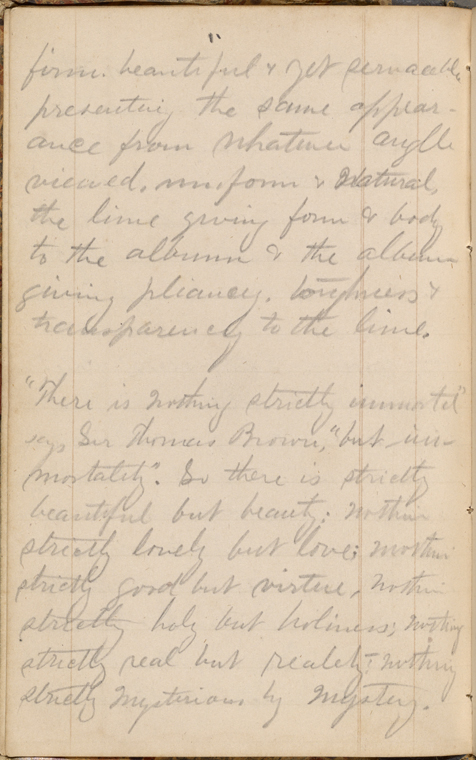 firm. beautiful & yet serviceable
presenting the same appear-
ance from whatever angle
viewed, uniform & Natural,
the lime giving form & body
to the albumn & the album
giving pliancy. toughness &
transparency to the lime.
"There is nothing strictly immortal"
says Sir Thomas Brown, "but im-
mortality". So there is strictly
beautiful but beauty: nothin
strictly lovely but love; nothin
strictly good but virtue, nothin
strictly holy but holiness; nothing
strictly real but reality; nothing
strictly mysterious by Mystery.